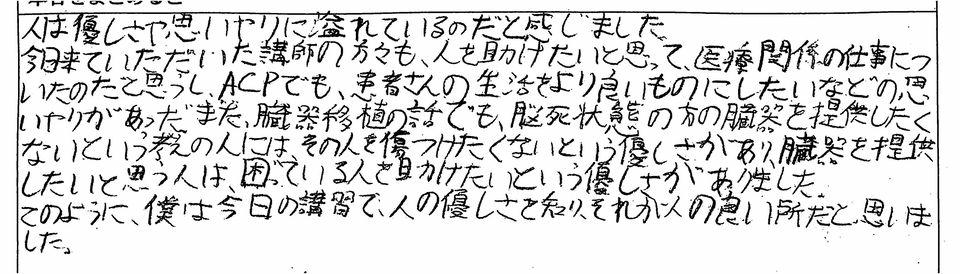 人は優しさや思いやりに溢れているのだと感じました
今日来ていただいた講師の方々も、人を助けたいと思って、医療関係の仕事につ
いたのだと思うし、ACPでも、患者さんの生活をより良いものにしたいなどの思
いやりがあっだ。また、臓器移植の話でも、脳死状態の方の臓器を提供したく
ないという考えの人には、その人を傷つけたくないという優しさがあり、臓器を提供
したいと思う人は、困っている人を助けたいという優しさがありました。
このように、僕は今日の講習で、人の優しさを知り、それが人の良い所だと思いま
した。